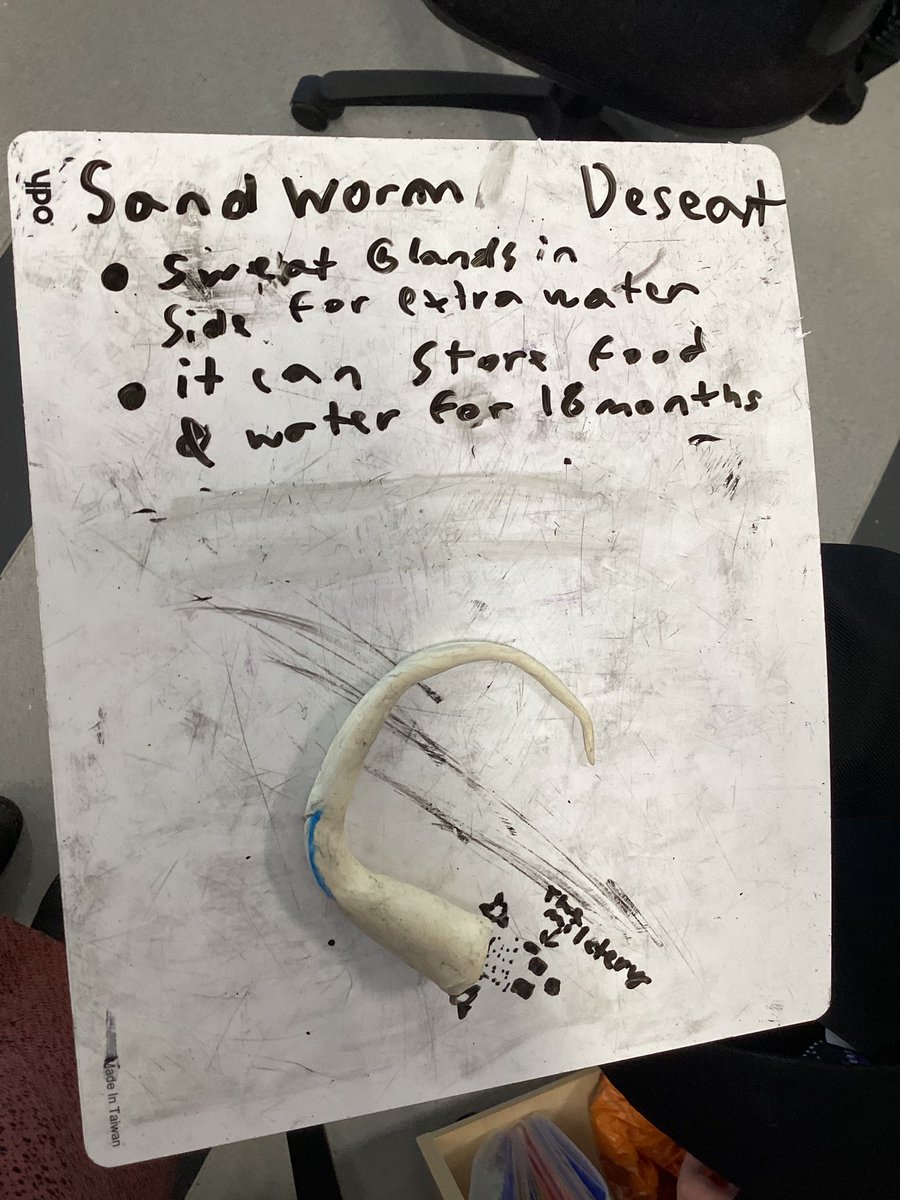 ypo
Sand worm Deseart
• Sweat Glands in
Side for extra water
• it can Store food
& water for 18 months
The
Made In Taiwan